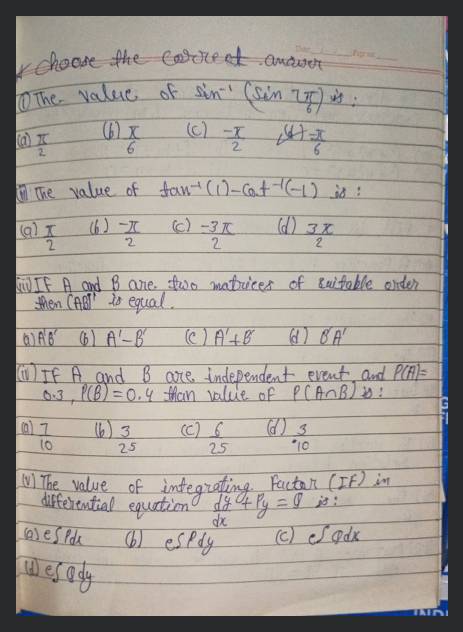 * Choose the correct answer
(i) The value of sin⁻¹ (sin 7π/6) is:
(a) π/2 (b) π/6 (c) -π/2 (d) -π/6
(ii) The value of tan⁻¹(1)-cot⁻¹(-1) is:
(a) π/2 (b) -π/2 (c) -3π/2 (d) 3π/2
(iii) If A and B are two matrices of suitable order
then (AB)' is equal.
(a) A'B' (b) A'-B' (c) A'+B' (d) B'A'
(iv) If A and B are independent event and P(A)=
0.3, P(B)=0.4 than value of P(A∩B) is:
(a) 7/10 (b) 3/25 (c) 6/25 (d) 3/10
(v) The value of integrating factor (IF) in
differential equation dy/dx + Py = Q is:
(a) e∫Pdx (b) e∫Pdy (c) e∫Qdx
(d) e∫Qdy